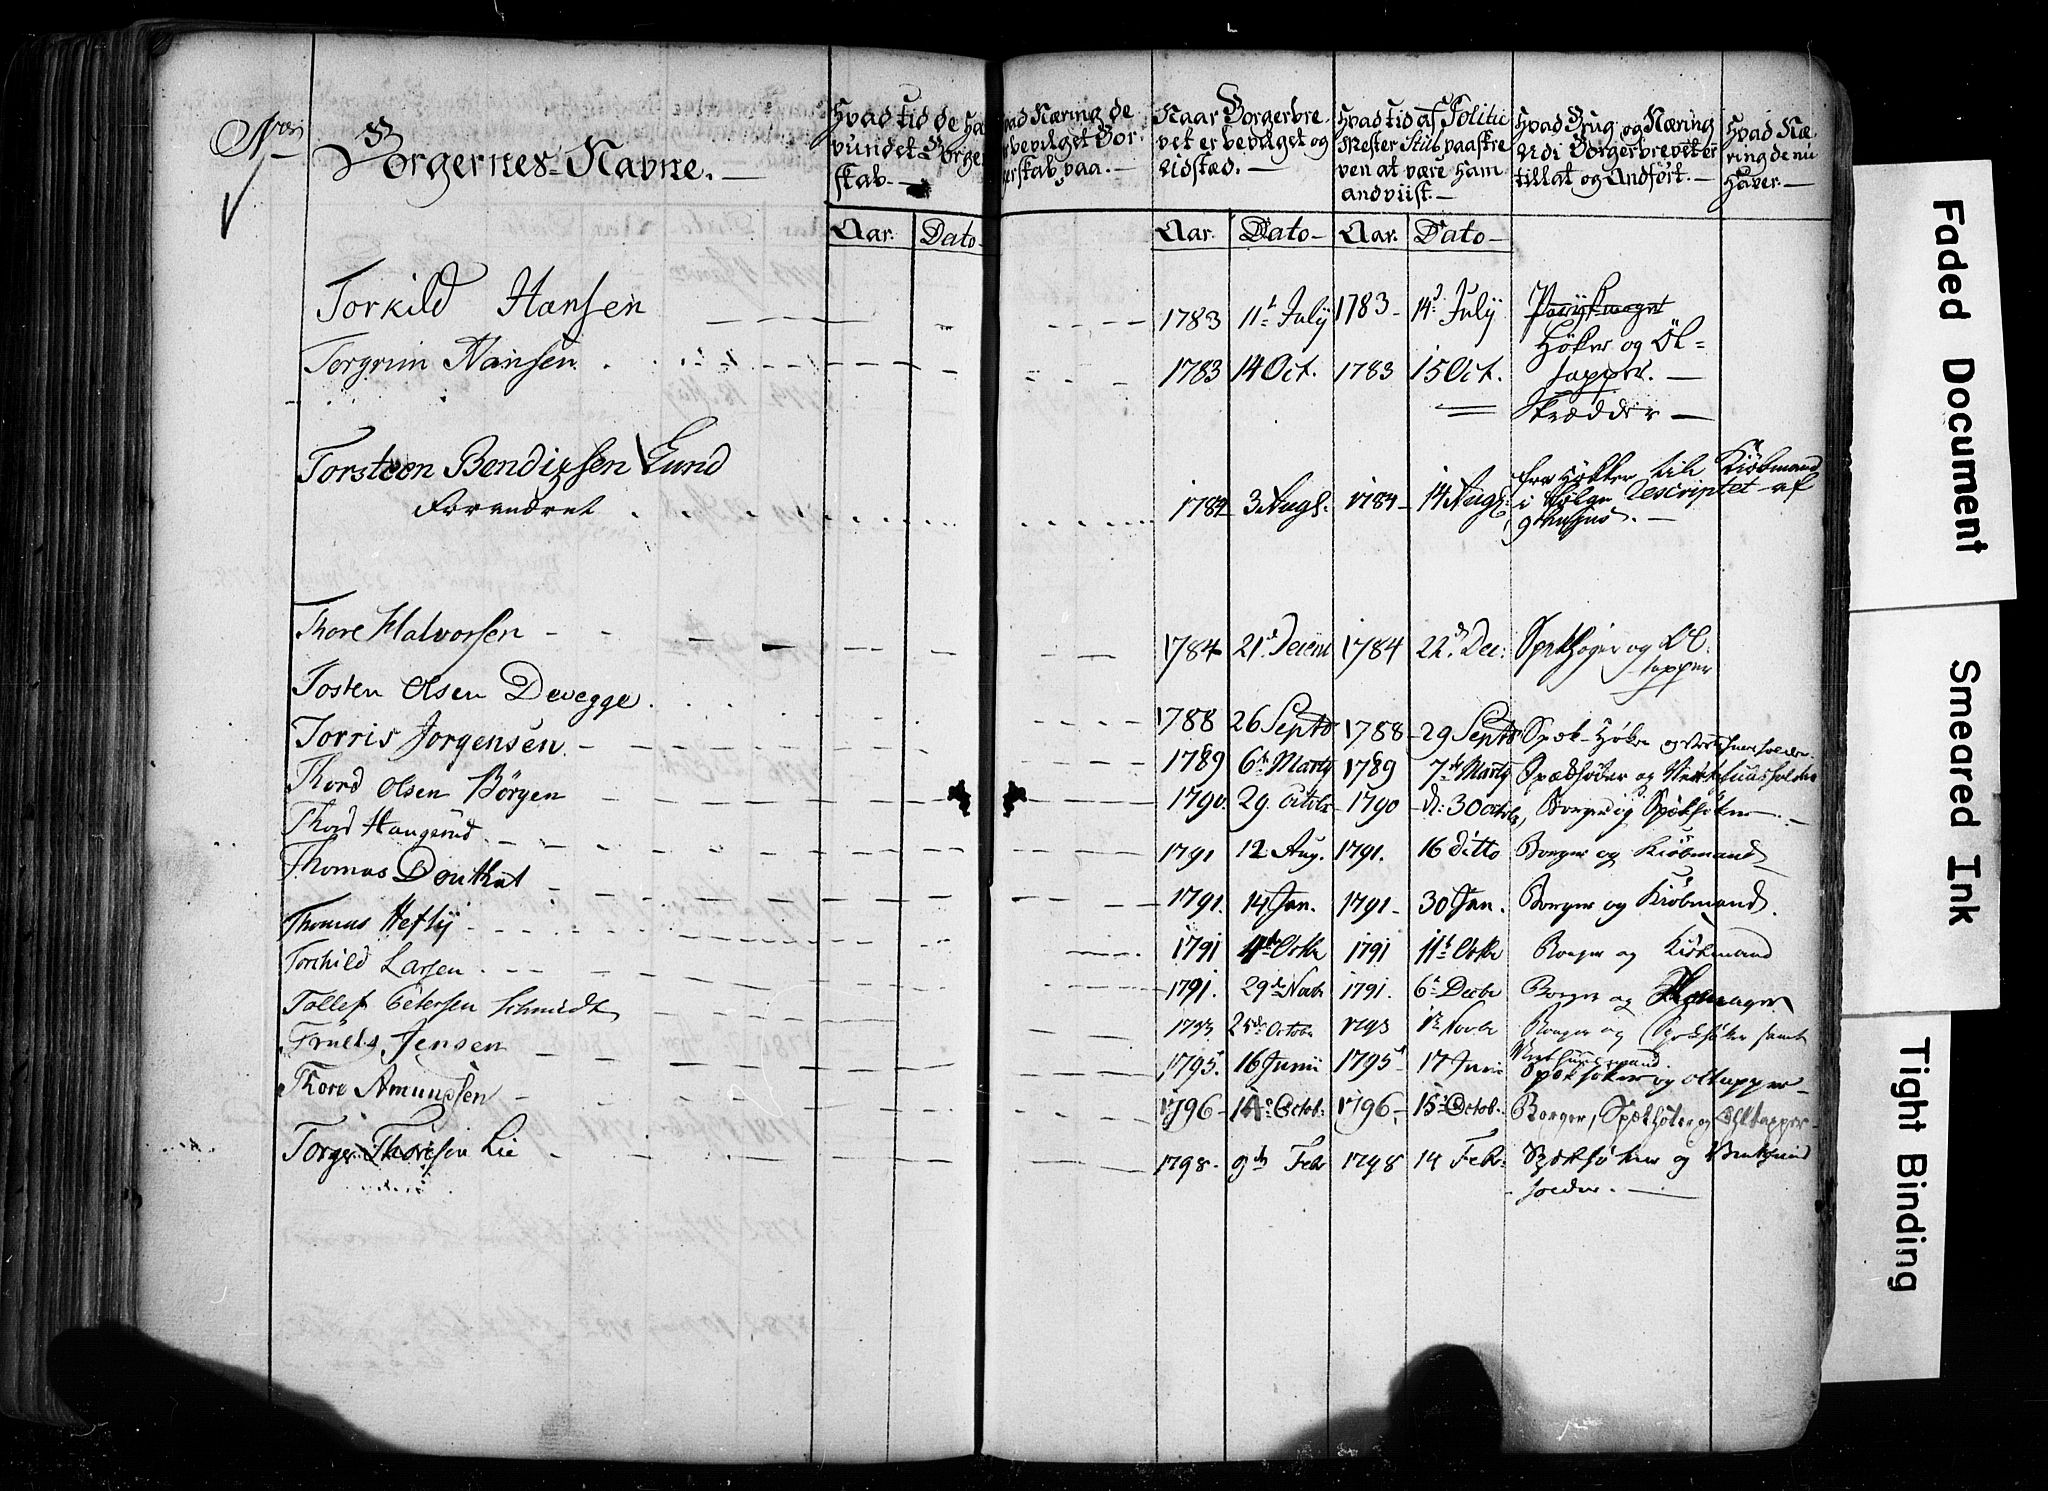 Nros
Borgernes Navne.
Hvad tid de ha
vundet Borger
skab.
Hvad Næring de
er bevilget Bor-
gerskab paa.
Naar Borgerbre-
vet er bevilget og
Udstæd.
Hvad tid af Politie
Mester Stub paaskre
ven at være ham
andviist.
Hvad Brug og Næring
Udi Borgerbrevet er
tillat og Anført.
Hvad Næ
ring de nu
Haver.
Aar. Dato Aar. Dato Aar. Dato
Torkild Hansen 1783 11 July 1783 14 July
Høker og Öl-
Torgrim Hansen 1783 14 Oct. 1783 15 Oct. tapper.
Skrædder
Torsteen Bendixsen Lund fra Høkker til Kiöbmand
Forandret 1784 3 Augs. 1784 14 Augs. i Følge Rescriptet af
Thore Halvorsen 1784 21 Decem 1784 22 Dec: Spekhøger og Öl
tapper
Tosten Olsen Devegge 1788 26 Septb 1788 29 Septb Spæk-Høker og
Torris Jorgensen 1789 6 Marty 1789 7 Marty Spækhøker og Vertshuusholder
Thord Olsen Börgen 1790 29 Octobr 1790 d: 30 Octobr, Borgerlig Spekhøker
Thord Haugerud 1791 12 Aug. 1791. 16 ditto Borger og Kiöbmand
Thomas Douthat 1791. 14 Jan. 1791 30 Jan. Borger og Kiöbmand.
Thomas Heftij 1791 4 Octbr 1791 11 Octbr Borger og Kiöbmand
Torchild Larsen 1791. 29 Novbr 1791. 6 Decbr Borger og
Tollef Petersen Schmidt 1793 25de Octobr 1793 1 Novbr Borger og Spekhøker samt
Vertshuusmand.
Truels Jensen 1795. 16 Junii 1795 17 Junii Spækhøker og oltapper
Thore Amundsen 1796 14 Octob. 1796 15 Octob. Borger, Spekhøker og Öhltapper
Torger Thoresen Lie 1798. 9de Febr 1798 14 Febr. Spekhøker og Vertshuus
holder.
Faded Document
Smeared Ink
Tight Binding